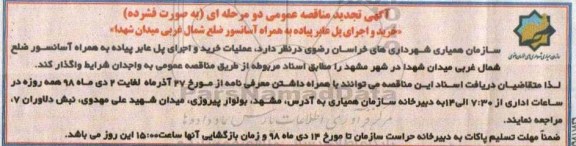 آگهی تجدید مناقصه عمومی دو مرحله ای (به صورت فشرده)
«خرید و اجرای پل عابر پیاده به همراه آسانسور ضلع شمال غربی میدان شهدا»
سازمان همیاری شهرداری های خراسان رضوی در نظر دارد، عملیات خرید و اجرای پل عابر پیاده به همراه آسانسور ضلع
شمال غربی میدان شهدا در شهر مشهد را مطابق اسناد مربوطه از طریق مناقصه عمومی به واجدان شرایط واگذار کند.
لذا متقاضیان دریافت اسناد این مناقصه می توانند با همراه داشتن معرفی نامه از مورخ ۲۷ آذرماه لغایت ۲ دی ماه ۹۸ همه روزه در
ساعات اداری از ۷:۳۰ الی ۱۴ به دبیرخانه سازمان همیاری به آدرس، مشهد، بولوار پیروزی، میدان شهید علی مهدوی، نبش دلاوران ۷،
مراجعه نمایند.
ضمناً مهلت تسلیم پاکات به دبیرخانه حراست سازمان تا مورخ ۱۴ دی ماه ۹۸ و زمان بازگشایی آنها ساعت ۱۵:۰۰ این روز می باشد.